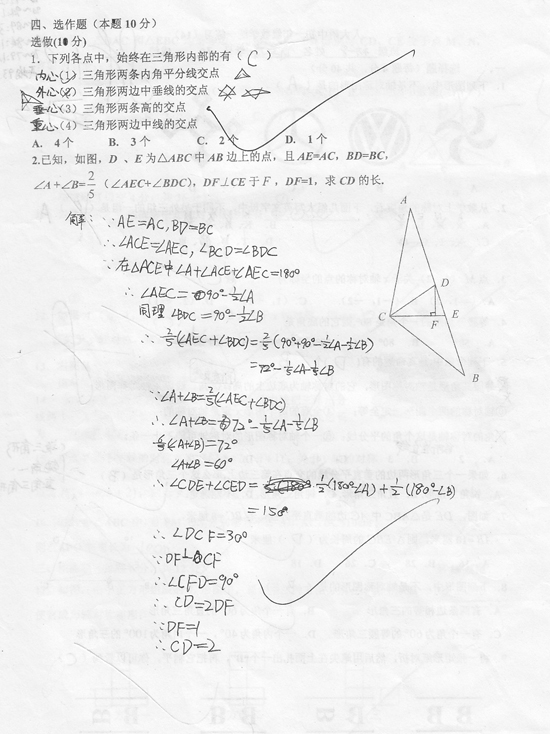 四、选作题（本题10分）
选做(10分)
1. 下列各点中，始终在三角形内部的有（ C ）
内心（1）三角形两条内角平分线交点
外心（2）三角形两边中垂线的交点
垂心（3）三角形两条高的交点
重心（4）三角形两边中线的交点
A. 4个 B. 3个 C. 2个 D. 1个
2.已知，如图，D、E为△ABC中AB边上的点，且AE=AC，BD=BC，
∠A+∠B=2/5（∠AEC+∠BDC），DF⊥CE于F，DF=1，求CD的长.
解：∵AE=AC,BD=BC
∴∠ACE=∠AEC,∠BCD=∠BDC
∵在△ACE中∠A+∠ACE+∠AEC=180°
∴∠AEC=90°-1/2∠A
同理∠BDC=90°-1/2∠B
∴2/5(∠AEC+∠BDC)=2/5(90°+90°-1/2∠A-1/2∠B)
=72°-1/5∠A-1/5∠B
∵∠A+∠B=2/5(∠AEC+∠BDC)
∴∠A+∠B=72°-1/5∠A-1/5∠B
6/5(∠A+∠B)=72°
∠A+∠B=60°
∴∠CDE+∠CED=1/2(180°-∠A)+1/2(180°-∠B)
=150°
∴∠DCF=30°
∵DF⊥CF
∴∠CFD=90°
∴CD=2DF
∵DF=1
∴CD=2
A
D
C
F
E
B